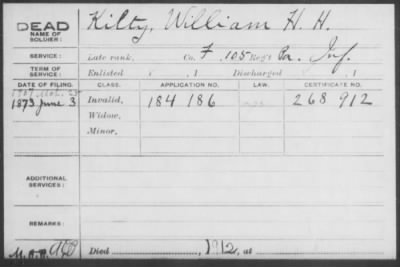 DEAD Kilty, William H. H.
NAME OF SOLDIER:
SERVICE: Late rank, Co. F, 105 Reg't Pa. Inf.
TERM OF SERVICE: Enlisted , 1 Discharged , 1
DATE OF FILING. CLASS. APPLICATION NO. LAW. CERTIFICATE NO.
1873 June 3 Invalid, 184 186 268 912
Widow,
Minor,
ADDITIONAL SERVICES:
REMARKS:
Died , 1912, at